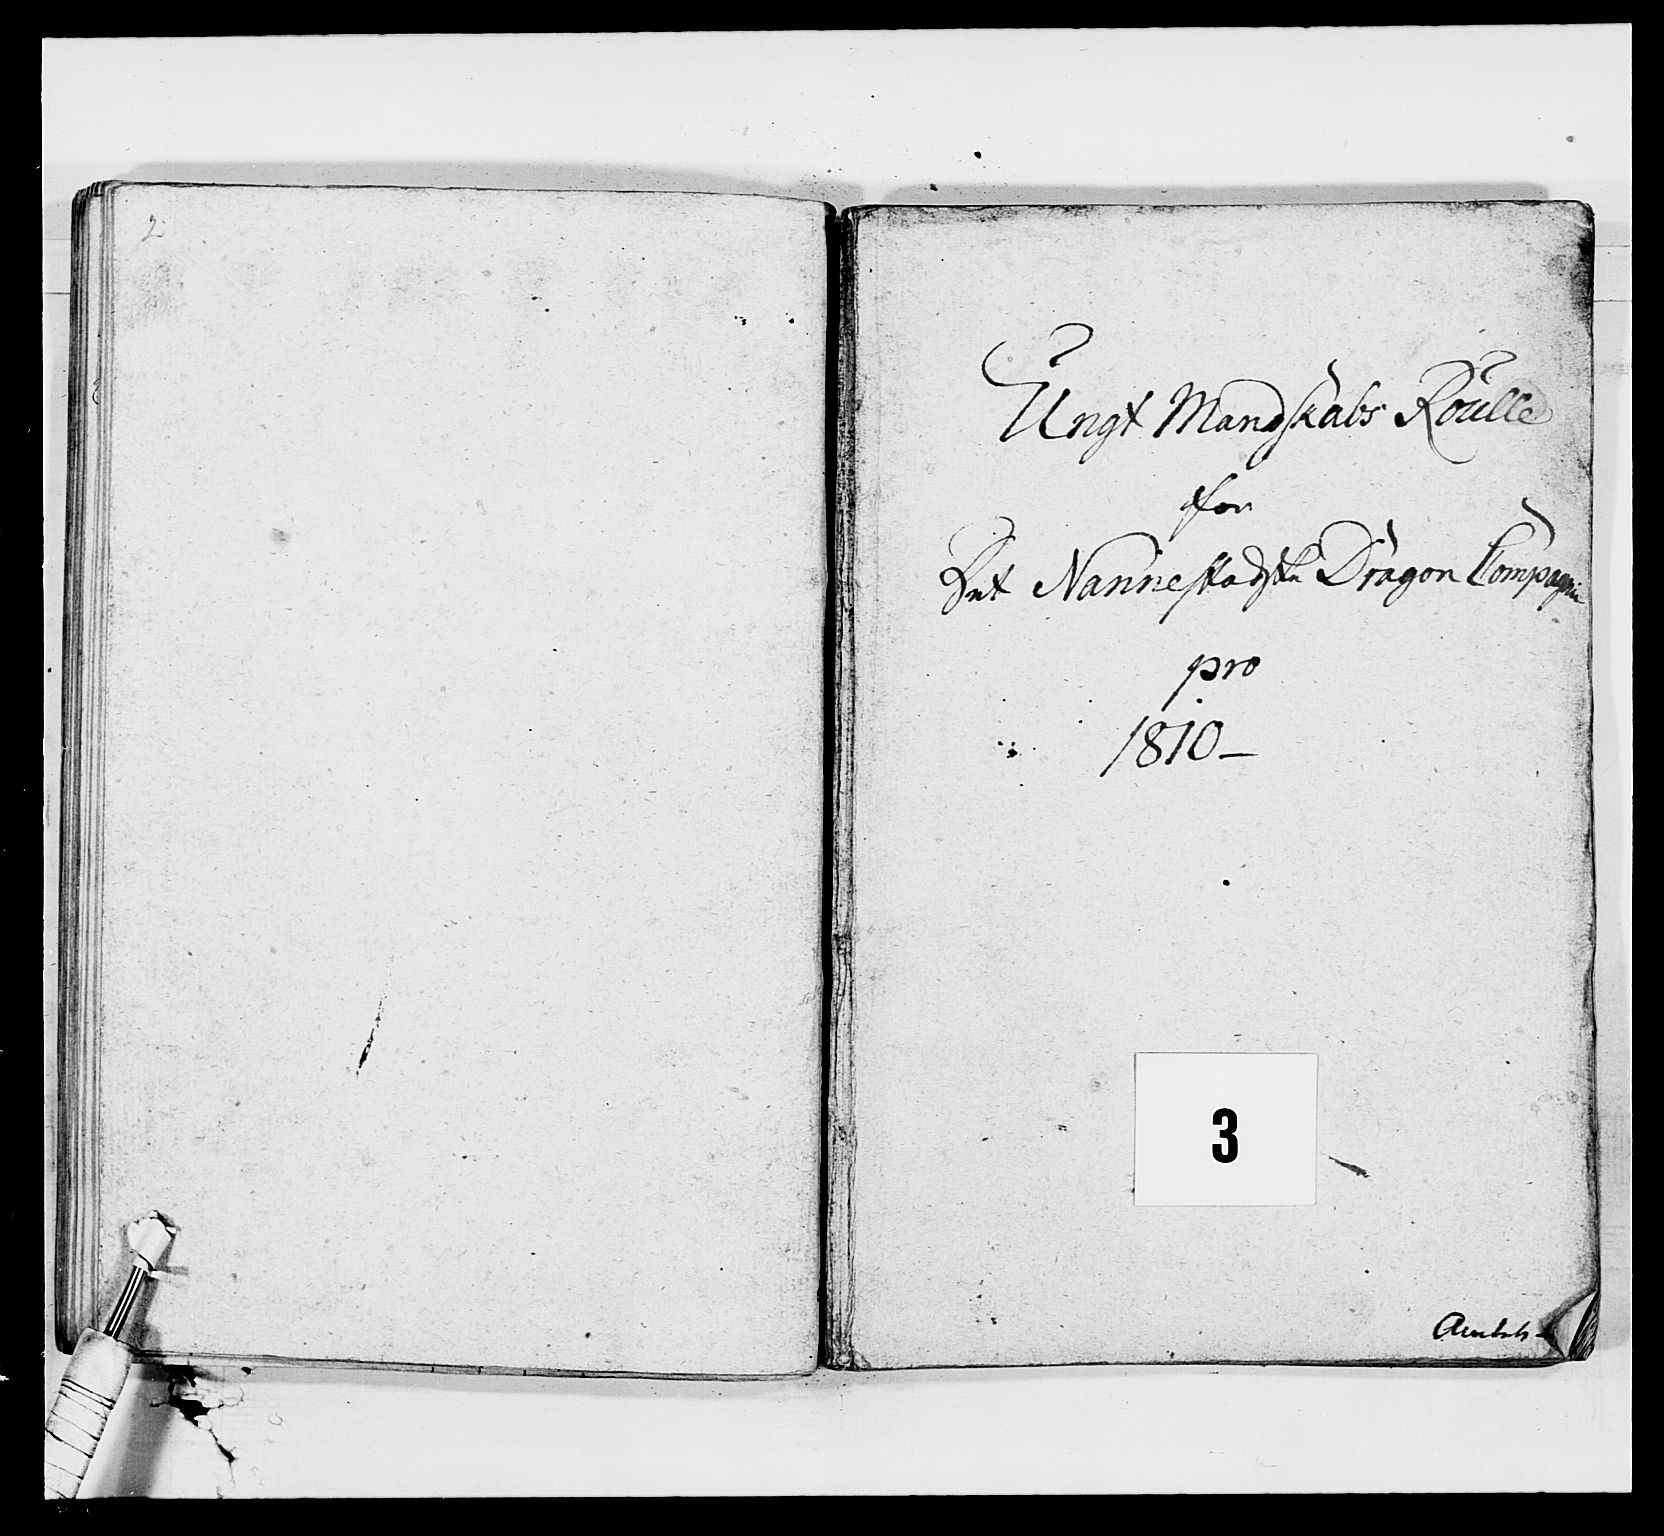 2
Ungt Mandskabs Roulle
for
Det Nannestadske Dragon Compagnie
pro
1810 –
3